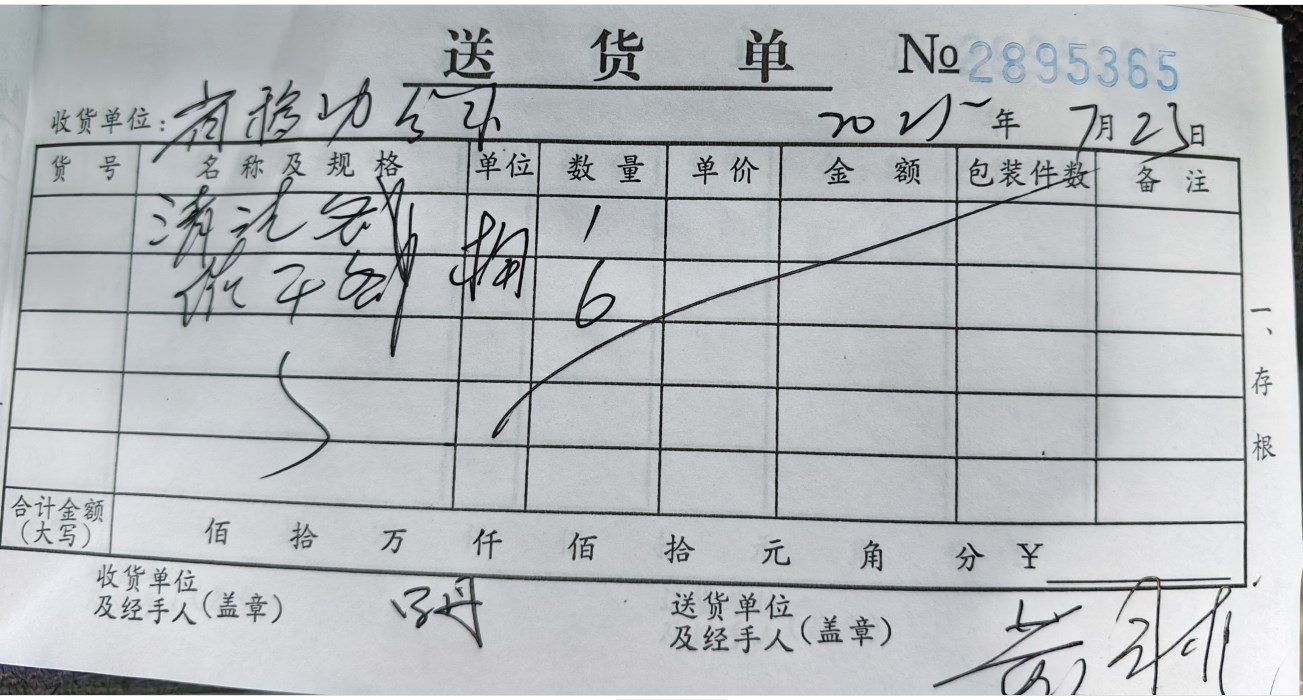 送 货 单 №2895365
收货单位：省移动公司 2025年7月23日
货号 名称及规格 单位 数量 单价 金额 包装件数 备注
清洗剂 桶 1
催干剂 6
一、存根
合计金额（大写） 佰 拾 万 仟 佰 拾 元 角 分 ￥
收货单位及经手人（盖章） 送货单位及经手人（盖章）